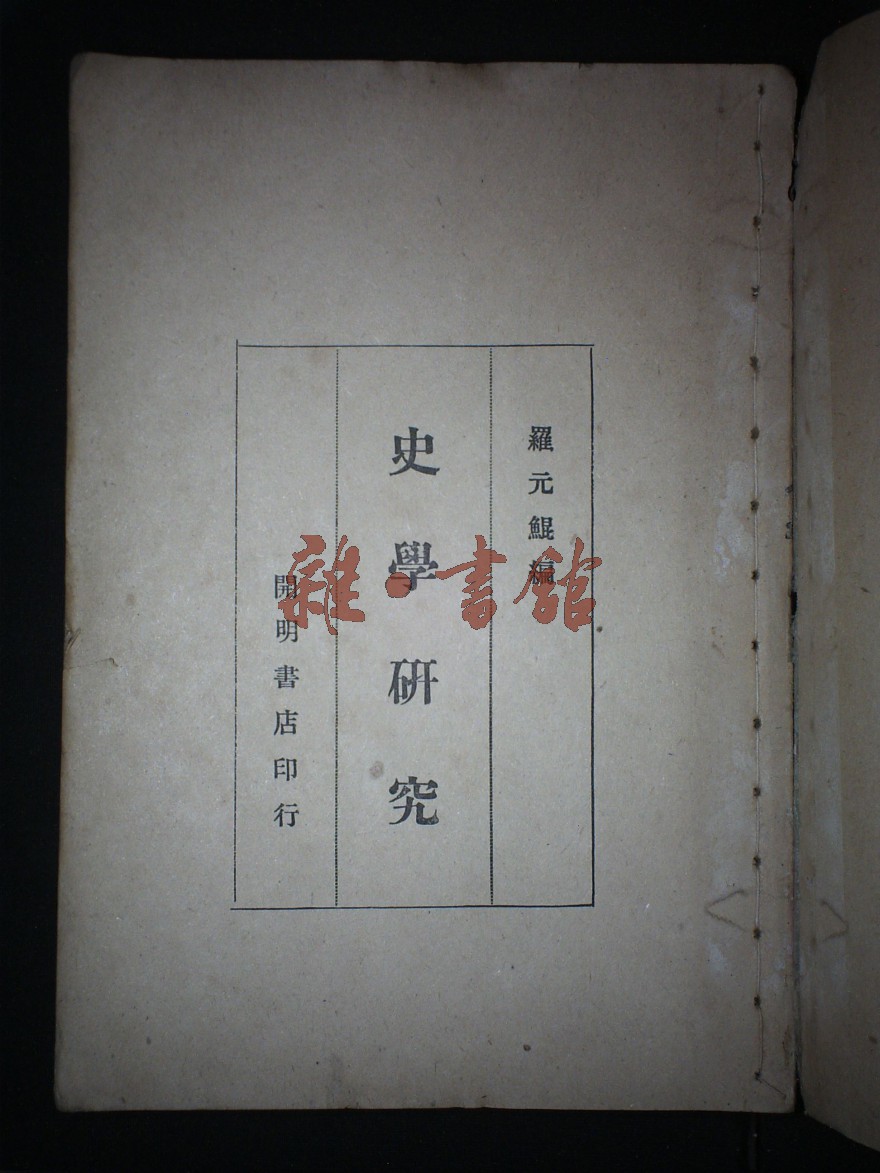 羅元鯤編
史學研究
開明書店印行
雜·書館